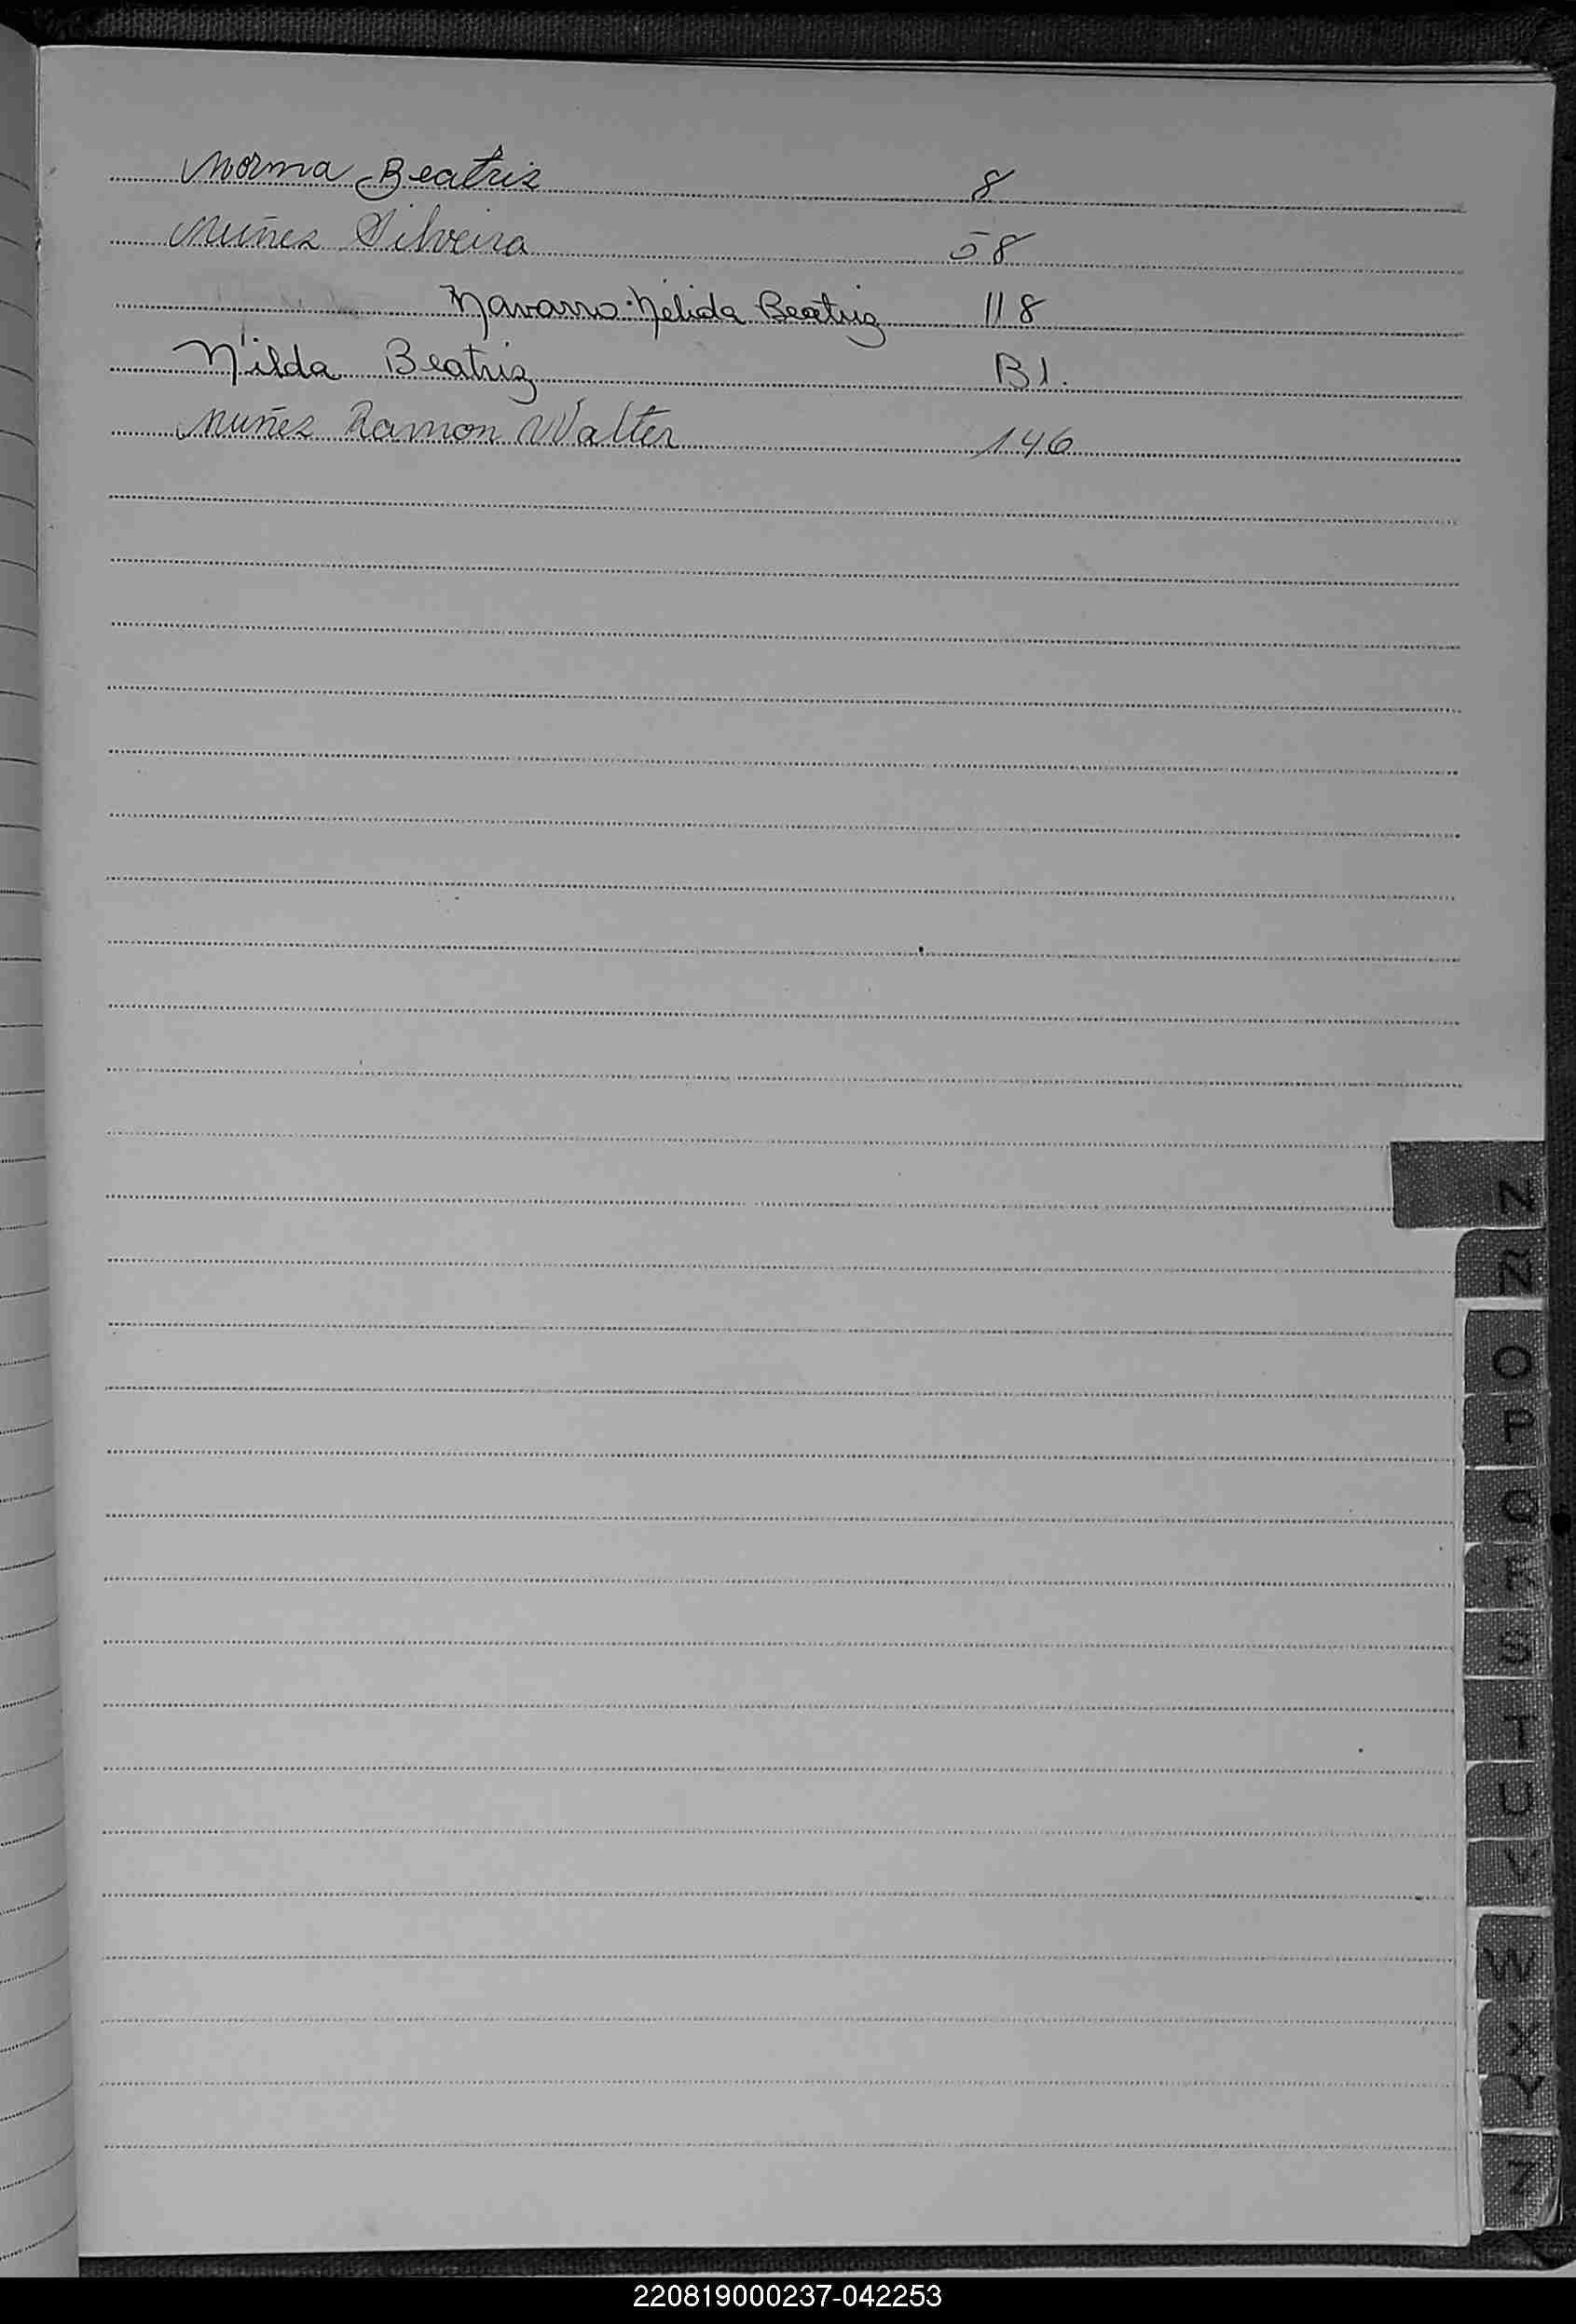 Norma Beatriz 8
Muñez Silveira 58
Navarro Nélida Beatriz 118
Nilda Beatriz B1.
Nuñez Ramon Walter 146
N
Ñ
O
P
Q
R
S
T
U
V
W
X
Y
Z
220819000237-042253